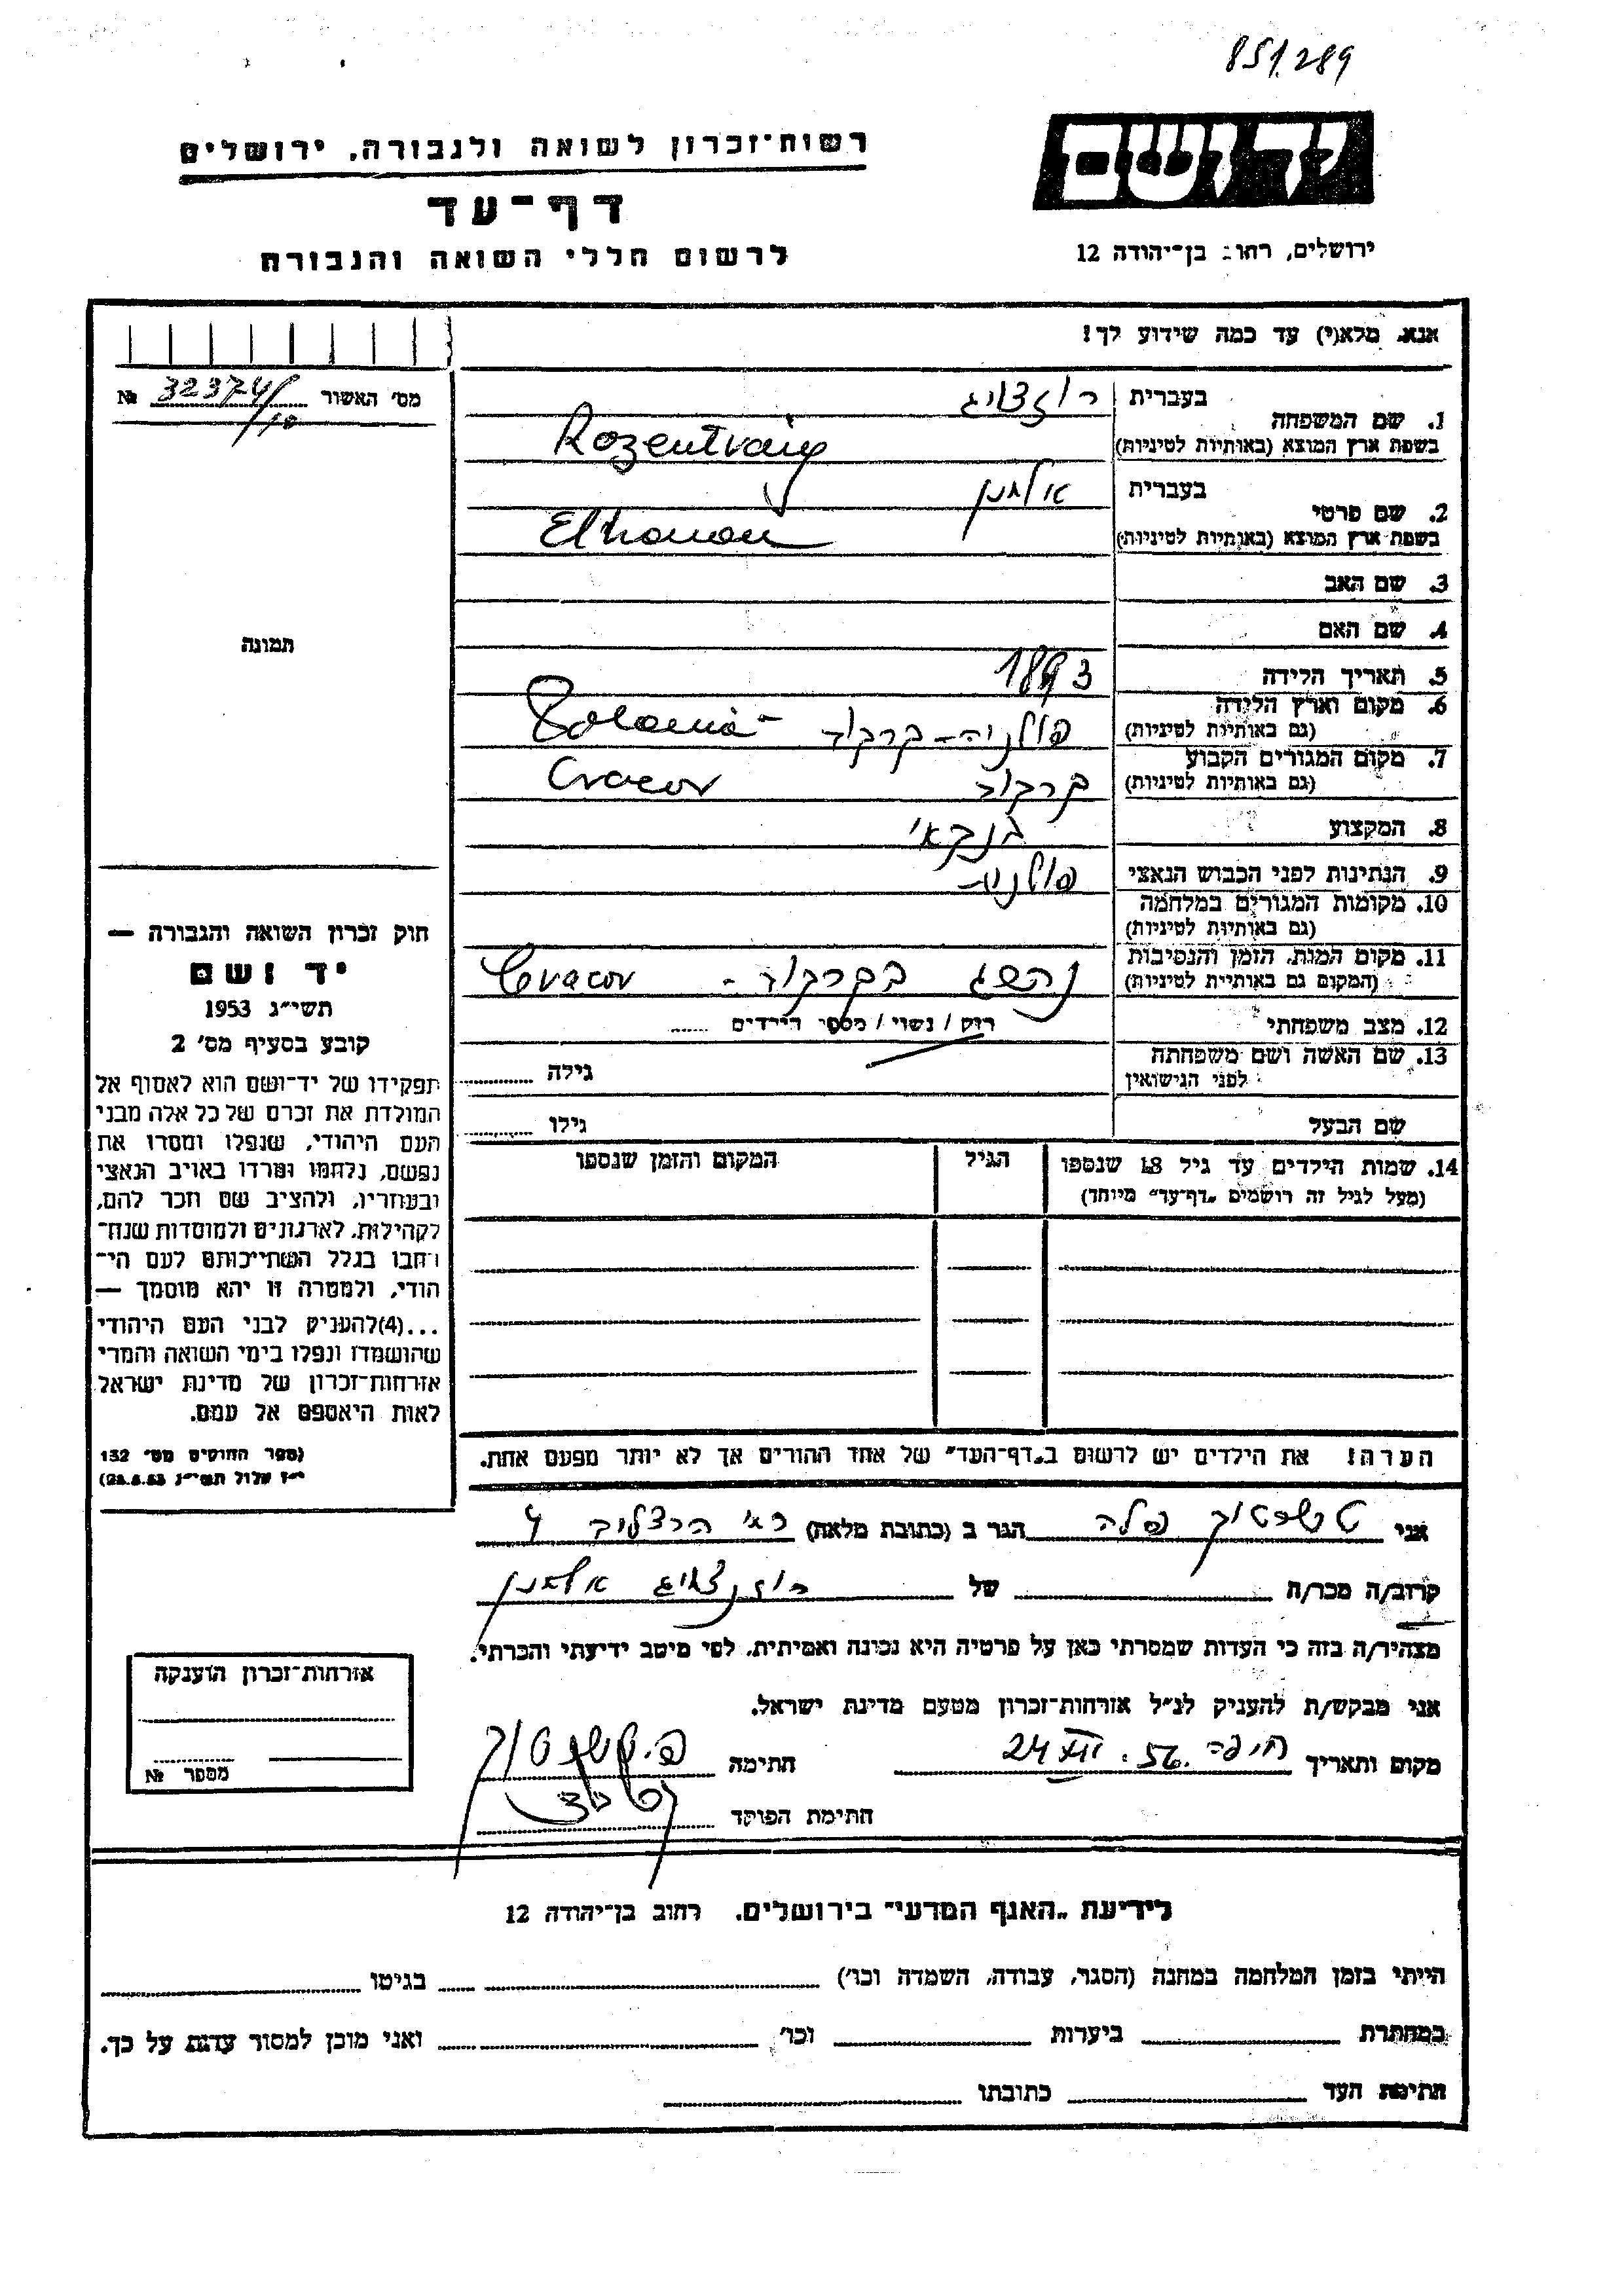 851.289
רשות־זכרון לשואה ולגבורה, ירושלים
יד ושם
דף־עד
לרשום חללי השואה והגבורה
ירושלים, רחוב בן־יהודה 12
אנא, מלא(י) עד כמה שידוע לך!
מס' האשור № 32374/10
1. שם המשפחה
בעברית
בשפת ארץ המוצא (באותיות לטיניות) Rozentvaig
2. שם פרטי
בעברית אלחנן
בשפת ארץ המוצא (באותיות לטיניות) Elhonon
3. שם האב
4. שם האם
5. תאריך הלידה 1893
6. מקום וארץ הלידה
(גם באותיות לטיניות) פולניה - קרקוב
7. מקום המגורים הקבוע
(גם באותיות לטיניות) קרקוב Cracov
8. המקצוע בנקאי
9. הנתינות לפני הכבוש הנאצי פולנית
10. מקומות המגורים במלחמה
(גם באותיות לטיניות)
11. מקום המות, הזמן והנסיבות
(המקום גם באותיות לטיניות) נהרג בקרקוב - Cracov
12. מצב משפחתי רווק / נשוי / מספר הילדים
13. שם האשה ושם משפחתה
לפני הנישואין גילה
שם הבעל גילו
14. שמות הילדים עד גיל 18 שנספו הגיל המקום והזמן שנספו
(מעל לגיל זה רושמים „דף־עד" מיוחד)
הערה! את הילדים יש לרשום ב„דף־העד" של אחד ההורים אך לא יותר מפעם אחת.
תמונה
חוק זכרון השואה והגבורה —
יד ושם
תשי"ג 1953
קובע בסעיף מס' 2
תפקידו של יד־ושם הוא לאסוף אל
המולדת את זכרם של כל אלה מבני
העם היהודי, שנפלו ומסרו את
נפשם, נלחמו ומרדו באויב הנאצי
ובעוזריו, ולהציב שם וזכר להם,
לקהילות, לארגונים ולמוסדות שנח־
רבו בגלל השתייכותם לעם הי־
הודי, ולמטרה זו יהא מוסמך —
...(4) להעניק לבני העם היהודי
שהושמדו ונפלו בימי השואה והמרי
אזרחות־זכרון של מדינת ישראל
לאות היאספם אל עמם.
(ספר החוקים מס' 132
י"ז אלול תשי"ג 28.8.53)
אני הגר ב (כתובת מלאה) רח' הרצליה 4
קרוב/ה מכר/ה של רוזנצויג אלחנן
מצהיר/ה בזה כי העדות שמסרתי כאן על פרטיה היא נכונה ואמיתית, לפי מיטב ידיעתי והכרתי.
אני מבקש/ת להעניק לנ"ל אזרחות־זכרון מטעם מדינת ישראל.
מקום ותאריך חיפה 24 XII. 56. חתימה
חתימת הפוקד
אזרחות־זכרון הוענקה
מספר №
לידיעת „האגף המדעי" בירושלים, רחוב בן־יהודה 12
הייתי בזמן המלחמה במחנה (הסגר, עבודה, השמדה וכו') בגיטו
במחתרת ביערות וכו' ואני מוכן למסור עדות על כך.
חתימת העד כתובתו